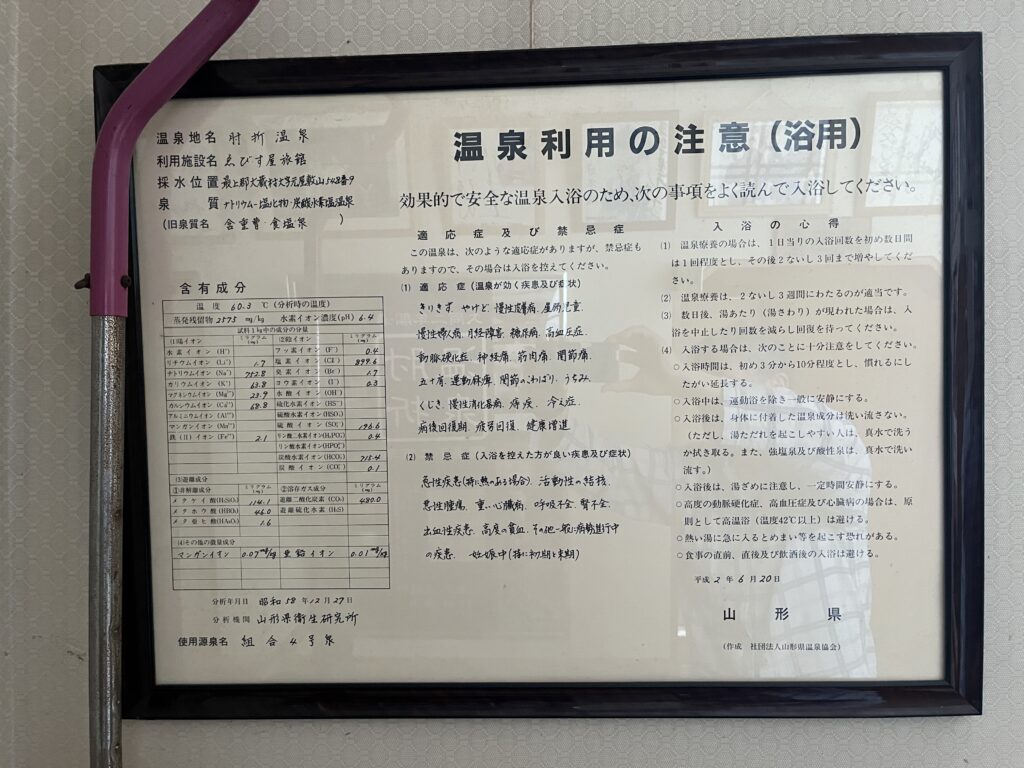 温泉地名 肘折温泉
利用施設名 ゑびす屋旅館
採水位置 最上郡大蔵村大字南山548番9
泉質 ナトリウム-塩化物・炭酸水素塩温泉
(旧泉質名 含重曹-食塩泉)
含有成分
温度 60.3 ℃(分析時の温度)
蒸発残留物 2575 mg/kg 水素イオン濃度(pH) 6.4
試料1kg中の成分の分量
(1)陽イオン ミリグラム(mg)
水素イオン (H⁺)
リチウムイオン (Li⁺) 1.7
ナトリウムイオン (Na⁺) 752.8
カリウムイオン (K⁺) 63.8
マグネシウムイオン (Mg²⁺) 23.9
カルシウムイオン (Ca²⁺) 68.8
アルミニウムイオン (Al³⁺)
マンガンイオン (Mn²⁺)
鉄(Ⅱ)イオン (Fe²⁺) 2.1
(2)陰イオン ミリグラム(mg)
フッ素イオン (F⁻) 0.4
塩素イオン (Cl⁻)
臭素イオン (Br⁻) 1.7
ヨウ素イオン (I⁻) 0.3
水酸イオン (OH⁻)
硫化水素イオン (HS⁻)
硫酸水素イオン (HSO₄⁻)
硫酸イオン (SO₄²⁻) 196.6
リン酸二水素イオン (H₂PO₄⁻) 0.4
リン酸水素イオン (HPO₄²⁻)
炭酸水素イオン (HCO₃⁻)
炭酸イオン (CO₃²⁻) 0.1
(3)遊離成分
①非解離成分 ミリグラム(mg)
メタケイ酸 (H₂SiO₃) 174.1
メタホウ酸 (HBO₂) 46.0
メタ亜ヒ酸 (HAsO₂) 1.6
②溶存ガス成分 ミリグラム(mg)
遊離二酸化炭素 (CO₂) 480.0
遊離硫化水素 (H₂S)
(4)その他の微量成分
マンガンイオン 0.07mg/kg 亜鉛イオン 0.01mg/kg
分析年月日 昭和58年12月27日
分析機関 山形県衛生研究所
使用源泉名 組合4号泉
温泉利用の注意(浴用)
効果的で安全な温泉入浴のため、次の事項をよく読んで入浴してください。
適応症及び禁忌症
この温泉は、次のような適応症がありますが、禁忌症も
ありますので、その場合は入浴を控えてください。
(1) 適応症(温泉が効く疾患及び症状)
きりきず. やけど. 慢性皮膚病. 虚弱児童.
慢性婦人病. 月経障害. 糖尿病. 高血圧症.
動脈硬化症. 神経痛. 筋肉痛. 関節痛.
五十肩. 運動麻痺. 関節のこわばり. うちみ.
くじき. 慢性消化器病. 痔疾. 冷え症.
病後回復期. 疲労回復. 健康増進
(2) 禁忌症(入浴を控えた方が良い疾患及び症状)
急性疾患(特に熱のある場合). 活動性の結核.
悪性腫瘍. 重い心臓病. 呼吸不全. 腎不全.
出血性疾患. 高度の貧血. その他一般に病勢進行中
の疾患. 妊娠中(特に初期と末期)
入浴の心得
(1) 温泉療養の場合は、1日当りの入浴回数を初め数日間
は1回程度とし、その後2ないし3回まで増やしてくだ
さい。
(2) 温泉療養は、2ないし3週間にわたるのが適当です。
(3) 数日後、湯あたり(湯さわり)が現われた場合は、入
浴を中止したり回数を減らし回復を待ってください。
(4) 入浴する場合は、次のことに十分注意をしてください。
○入浴時間は、初め3分から10分程度とし、慣れるにし
たがい延長する。
○入浴中は、運動浴を除き一般に安静にする。
○入浴後は、身体に付着した温泉成分は洗い流さない。
(ただし、湯ただれを起こしやすい人は、真水で洗う
か拭き取る。また、強塩泉及び酸性泉は、真水で洗い
流す。)
○入浴後は、湯ざめに注意し、一定時間安静にする。
○高度の動脈硬化症、高血圧症及び心臓病の場合は、原
則として高温浴(温度42℃以上)は避ける。
○熱い湯に急に入るとめまい等を起こす恐れがある。
○食事の直前、直後及び飲酒後の入浴は避ける。
平成2年6月20日
山形県
(作成 社団法人山形県温泉協会)